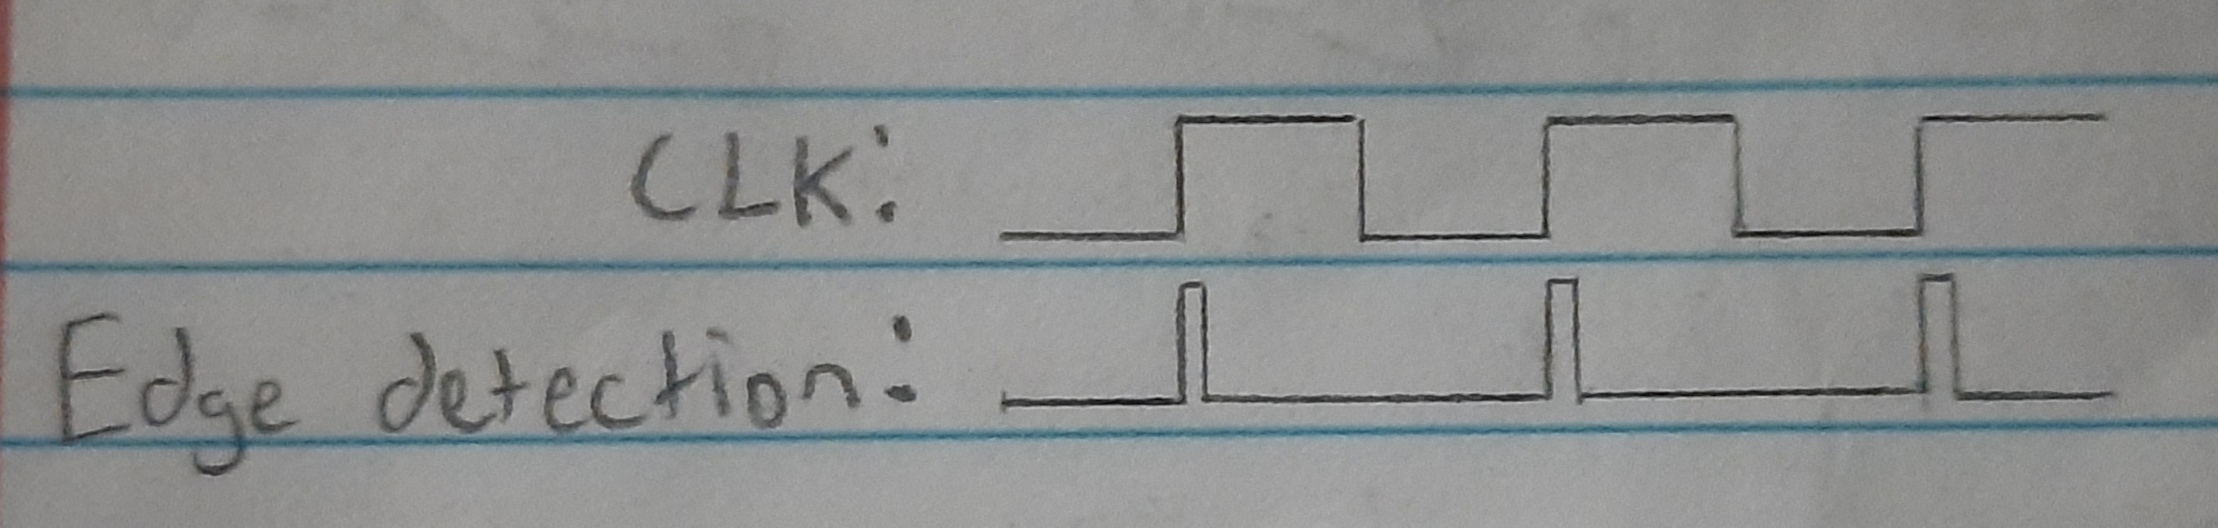 CLK:
Edge detection: